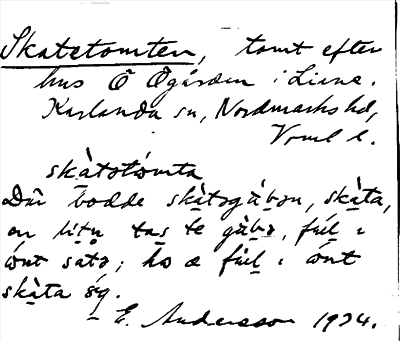 Skatetomten, tomt efter
hus Ô Ôgården i Liane.
Karlanda sn, Nordmarks hd,
Vrml l.
skàtətómta
Där bodde skàtəgùbən, skàta,
en litn̥ tas te gùbə, fúl i
ónt satə; ho æ fúl i ónt
skàta óg.
E. Andersson 1934.